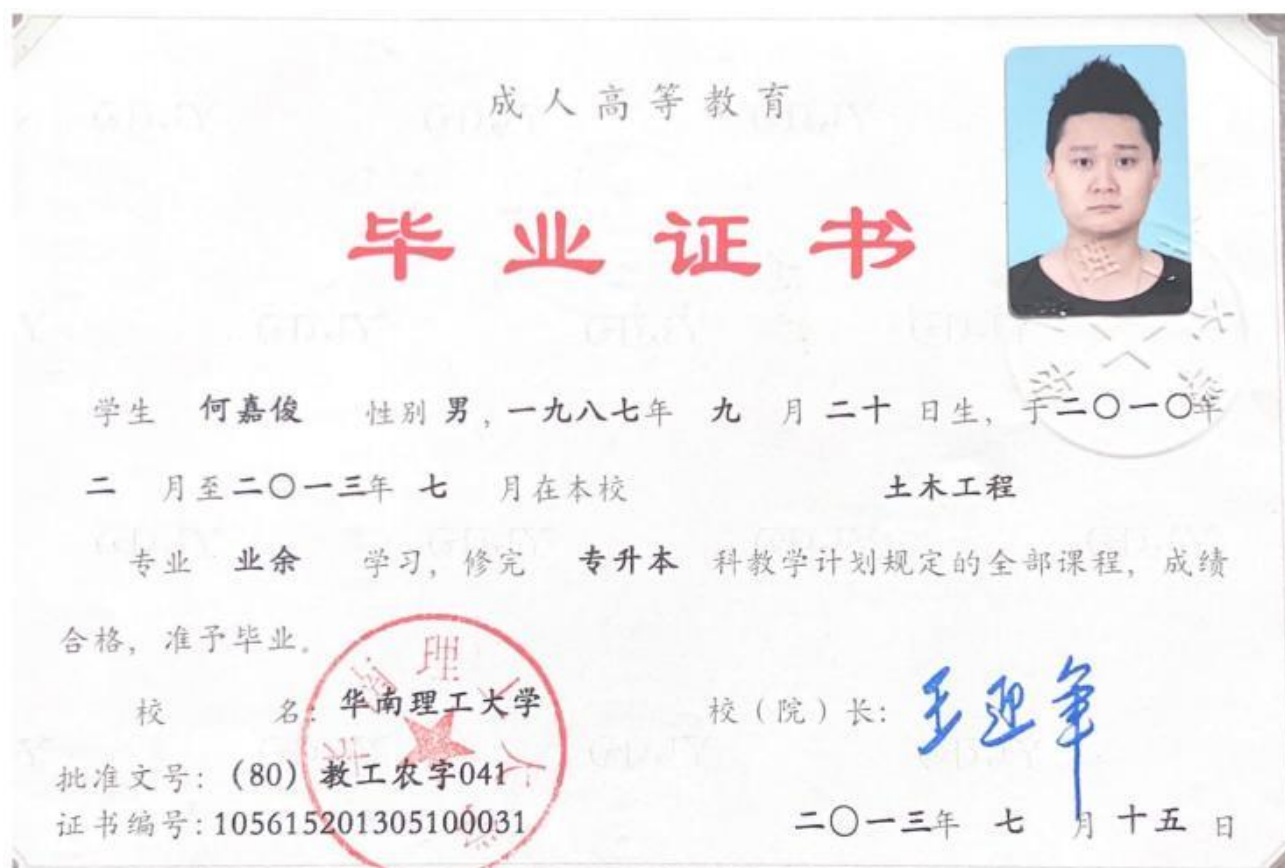 成人高等教育
毕业证书
学生 何嘉俊 性别 男，一九八七年 九 月 二十 日生，于二〇一〇年
二 月至二〇一三年 七 月在本校 土木工程
专业 业余 学习，修完 专升本 科教学计划规定的全部课程，成绩
合格，准予毕业。
校 名：华南理工大学 校（院）长：王迎军
批准文号：（80）教工农字041
证书编号：105615201305100031 二〇一三年 七 月 十五 日
华南理工大学